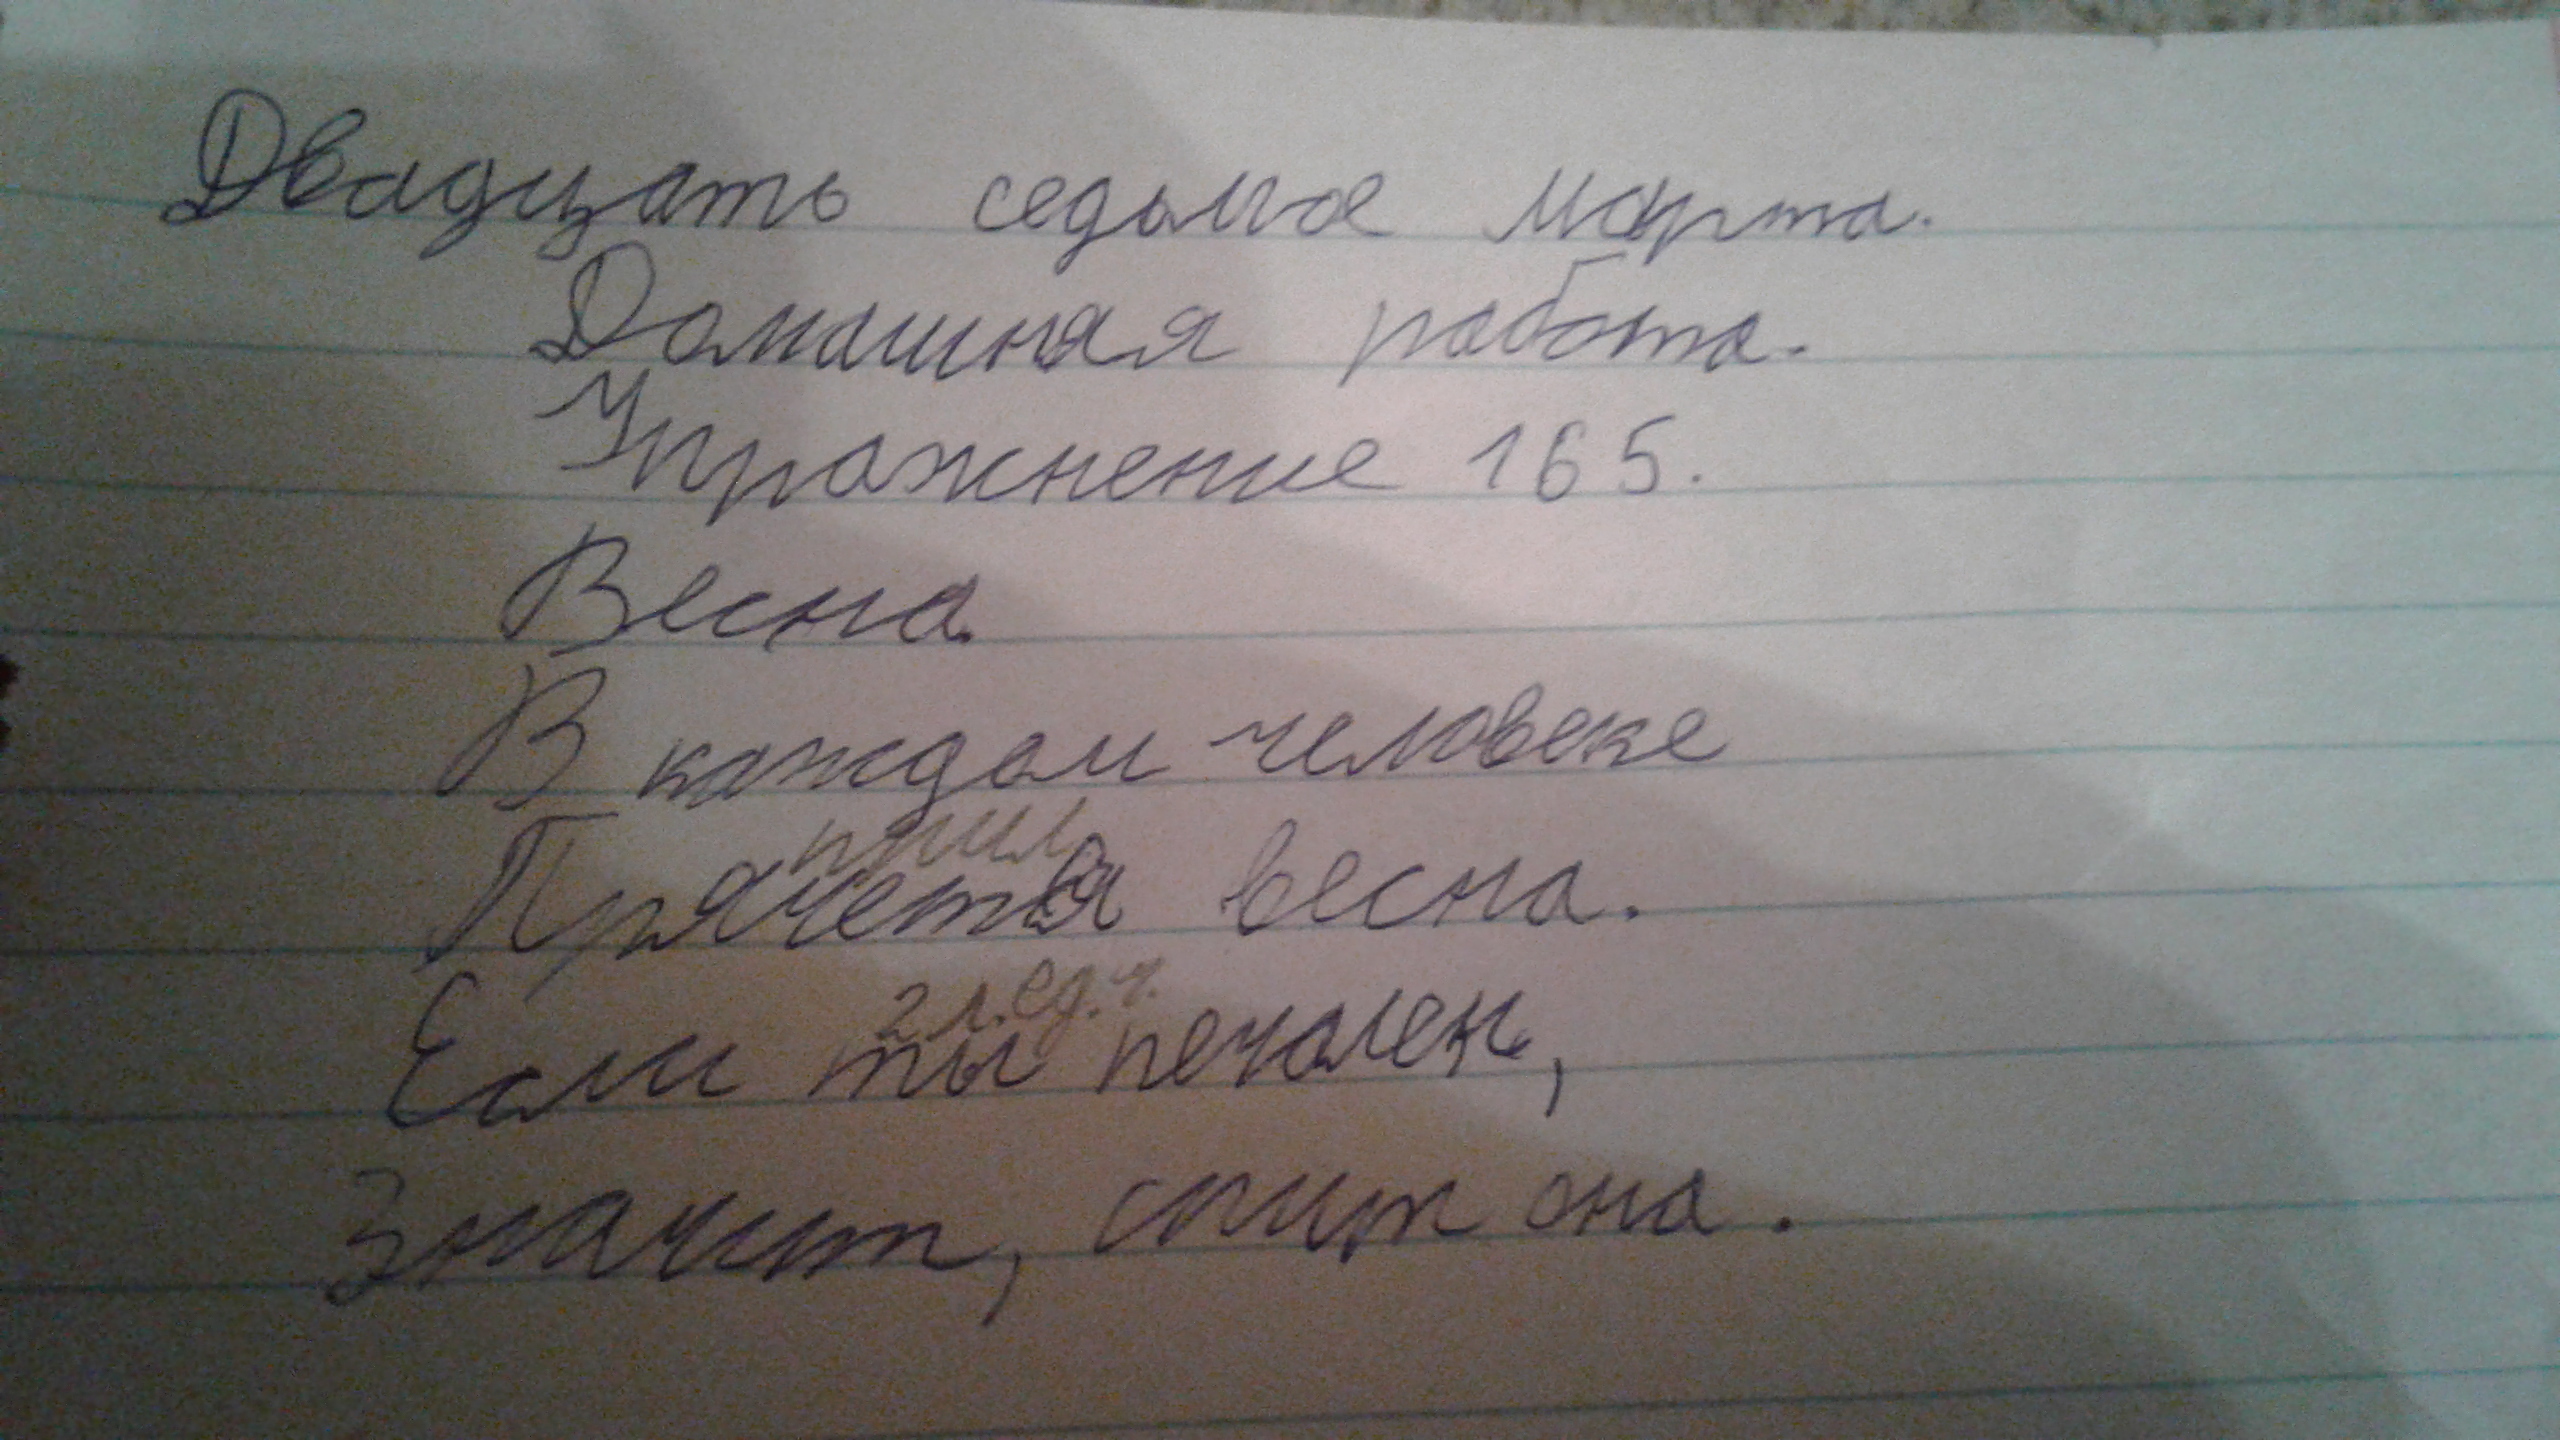 Двадцать седьмое марта.
Домашняя работа.
Упражнение 165.
Весна.
В каждом человеке
прил
Прячется весна.
2 л. ед. ч.
Если ты печален,
Значит, спит она.